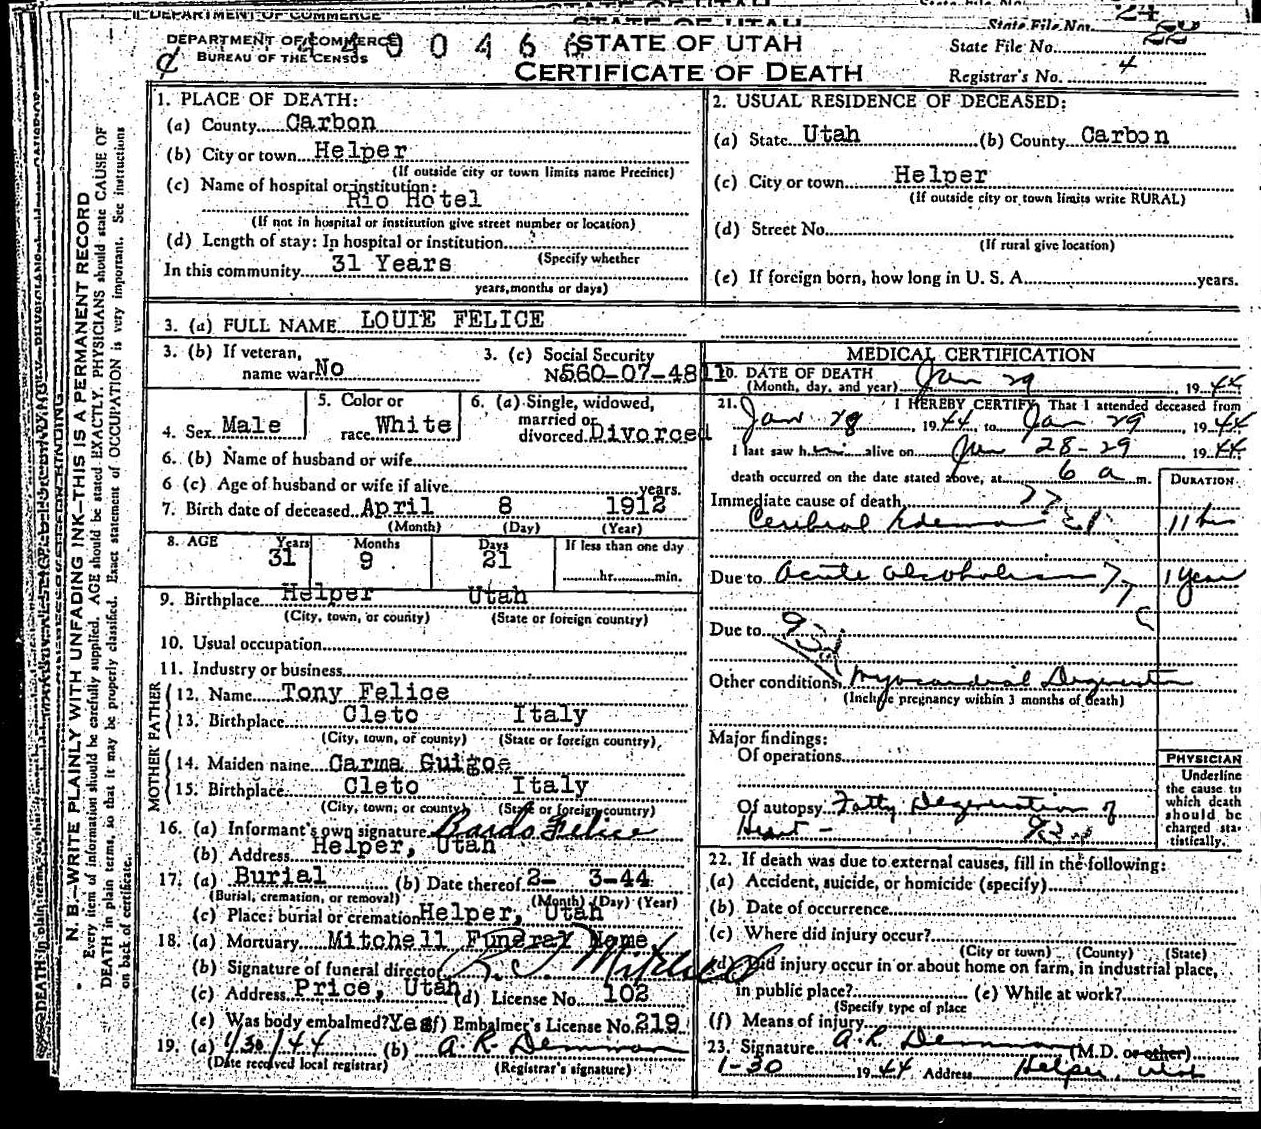 DEPARTMENT OF COMMERCE
STATE OF UTAH
STATE OF UTAH
State File No.
24
DEPARTMENT OF COMMERCE
BUREAU OF THE CENSUS
4400466
STATE OF UTAH
CERTIFICATE OF DEATH
State File No.
Registrar's No. 4
N. B.—WRITE PLAINLY WITH UNFADING INK—THIS IS A PERMANENT RECORD
Every item of information should be carefully supplied. AGE should be stated EXACTLY. PHYSICIANS should state CAUSE OF
DEATH in plain terms, so that it may be properly classified. Exact statement of OCCUPATION is very important. See instructions
on back of certificate.
1. PLACE OF DEATH:
(a) County Carbon
(b) City or town Helper
(If outside city or town limits name Precinct)
(c) Name of hospital or institution:
Rio Hotel
(If not in hospital or institution give street number or location)
(d) Length of stay: In hospital or institution
(Specify whether
In this community 31 Years
years, months or days)
2. USUAL RESIDENCE OF DECEASED:
(a) State Utah (b) County Carbon
(c) City or town Helper
(If outside city or town limits write RURAL)
(d) Street No.
(If rural give location)
(e) If foreign born, how long in U. S. A. years.
3. (a) FULL NAME LOUIE FELICE
3. (b) If veteran,
name war No
3. (c) Social Security
No 560-07-4811
4. Sex Male
5. Color or
race White
6. (a) Single, widowed,
married or
divorced Divorced
6. (b) Name of husband or wife
6 (c) Age of husband or wife if alive years.
7. Birth date of deceased April 8 1912
(Month) (Day) (Year)
8. AGE Years Months Days If less than one day
31 9 21 hr. min.
9. Birthplace Helper Utah
(City, town, or county) (State or foreign country)
10. Usual occupation
11. Industry or business
FATHER
12. Name Tony Felice
13. Birthplace Cleto Italy
(City, town, or county) (State or foreign country)
MOTHER
14. Maiden name Carma Guigoe
15. Birthplace Cleto Italy
(City, town, or county) (State or foreign country)
16. (a) Informant's own signature Felice
(b) Address Helper, Utah
17. (a) Burial (b) Date thereof 2- 3-44
(Burial, cremation, or removal) (Month) (Day) (Year)
(c) Place: burial or cremation Helper, Utah
18. (a) Mortuary Mitchell Funeral Home
(b) Signature of funeral director Mitchell
(c) Address Price, Utah (d) License No. 102
(e) Was body embalmed? Yes (f) Embalmer's License No. 219
19. (a) 1/30/44 (b) A. R. Demman
(Date received local registrar) (Registrar's signature)
MEDICAL CERTIFICATION
20. DATE OF DEATH
(Month, day, and year) Jan 29 1944
21. I HEREBY CERTIFY, That I attended deceased from
Jan 28, 1944, to Jan 29, 1944
I last saw h alive on Jan 28-29 1944
death occurred on the date stated above, at 6 a m.
DURATION
Immediate cause of death
Cerebral Edema 11 hrs
Due to Acute alcoholism 1 year
Due to
93d
Other conditions Myocardial Degeneration
(Include pregnancy within 3 months of death)
Major findings:
Of operations
Of autopsy Fatty Degeneration of
Heart - 93d
PHYSICIAN
Underline
the cause to
which death
should be
charged sta-
tistically.
22. If death was due to external causes, fill in the following:
(a) Accident, suicide, or homicide (specify)
(b) Date of occurrence
(c) Where did injury occur?
(City or town) (County) (State)
(d) Did injury occur in or about home on farm, in industrial place,
in public place? (e) While at work?
(Specify type of place
(f) Means of injury
23. Signature A. R. Demman (M.D. or other)
1-30 1944 Address Helper, Utah